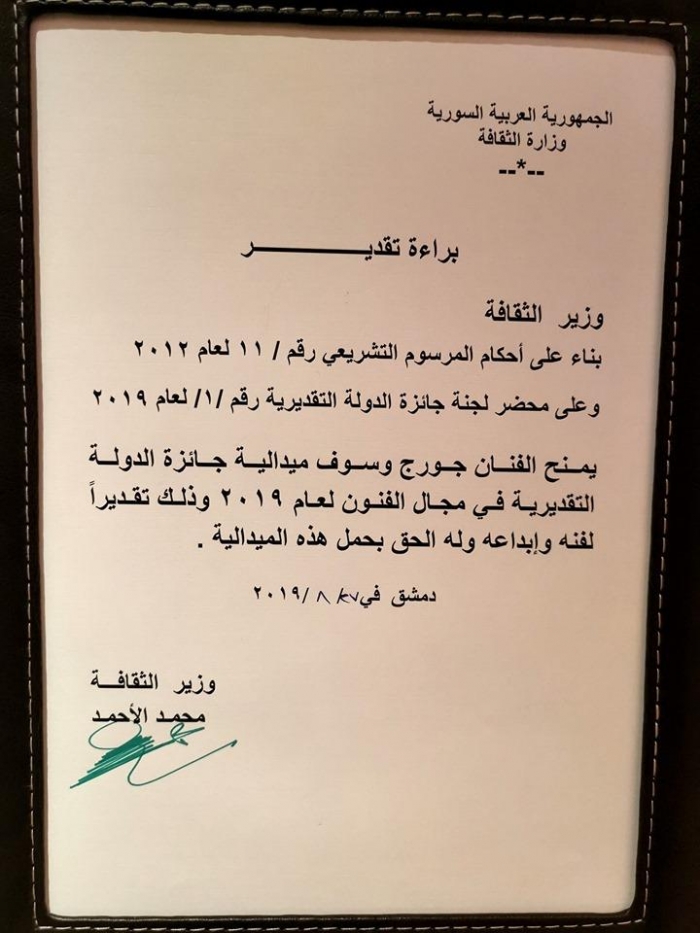 الجمهورية العربية السورية
وزارة الثقافة
--*--
براءة تقديــــــــــــر
وزير الثقافة
بناء على أحكام المرسوم التشريعي رقم / ١١ لعام ٢٠١٢
وعلى محضر لجنة جائزة الدولة التقديرية رقم /١/ لعام ٢٠١٩
يمنح الفنان جورج وسوف ميدالية جائزة الدولة
التقديرية في مجال الفنون لعام ٢٠١٩ وذلك تقديراً
لفنه وإبداعه وله الحق بحمل هذه الميدالية .
دمشق في ٢٧/ ٨ /٢٠١٩
وزير الثقافــة
محمد الأحمد